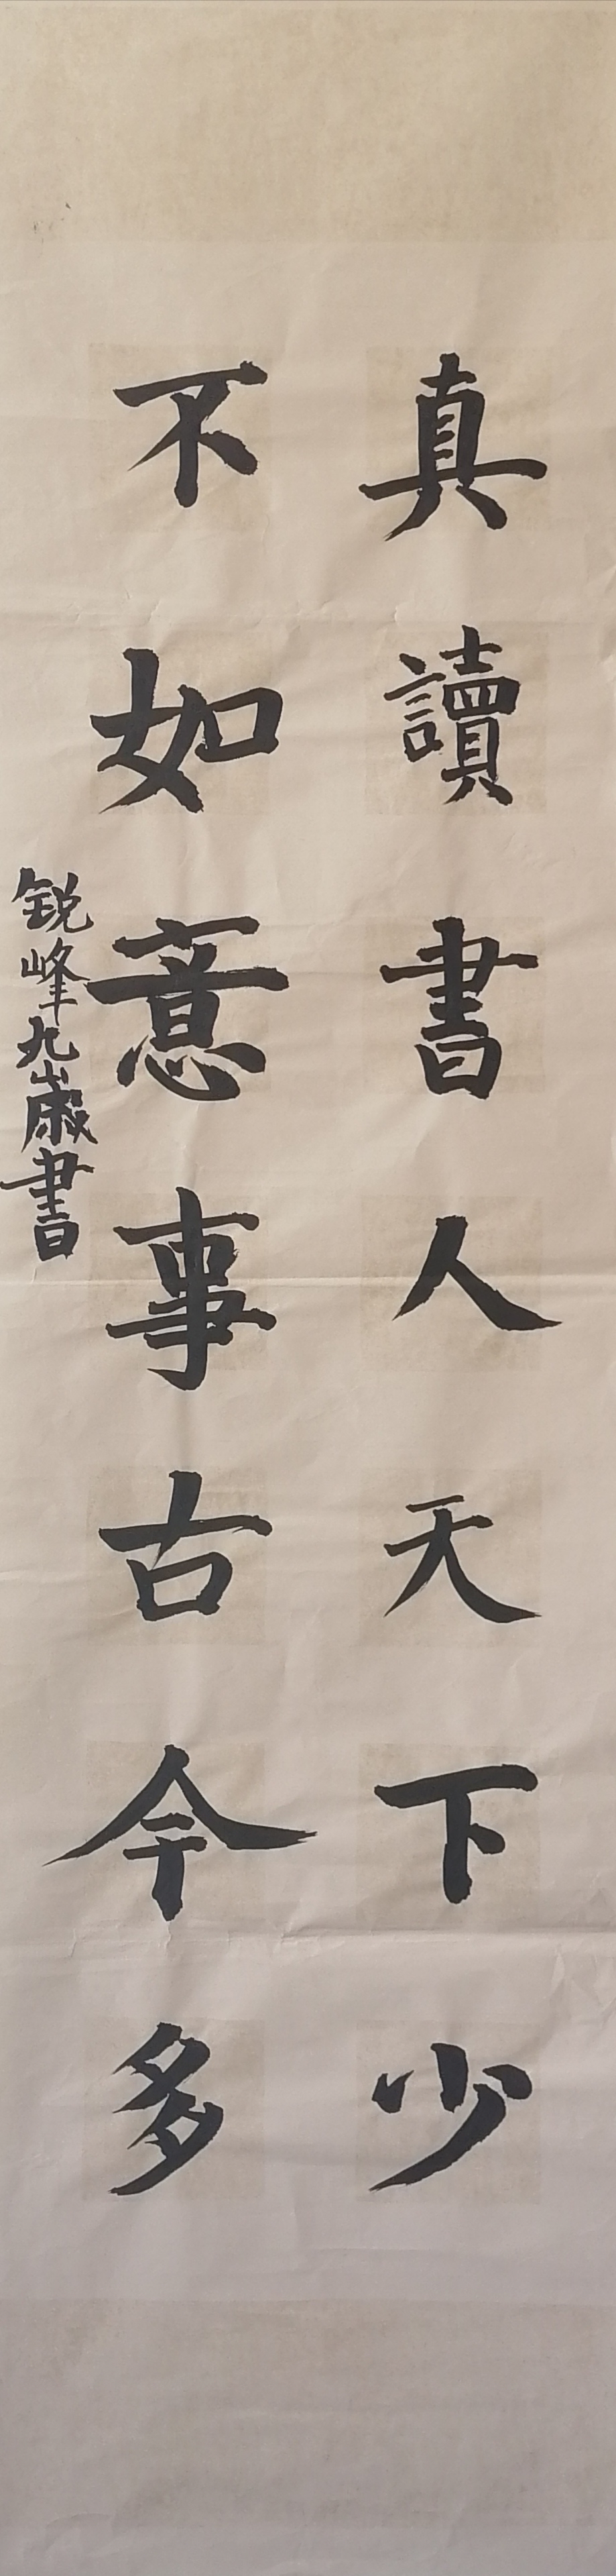 真讀書人天下少
不如意事古今多
锐峰九歲書